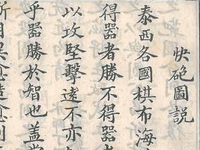 快砲圖説
泰西各國棋布海
得器者勝不得器者
以攻堅擊遠不亦
乎器勝於智也蓋